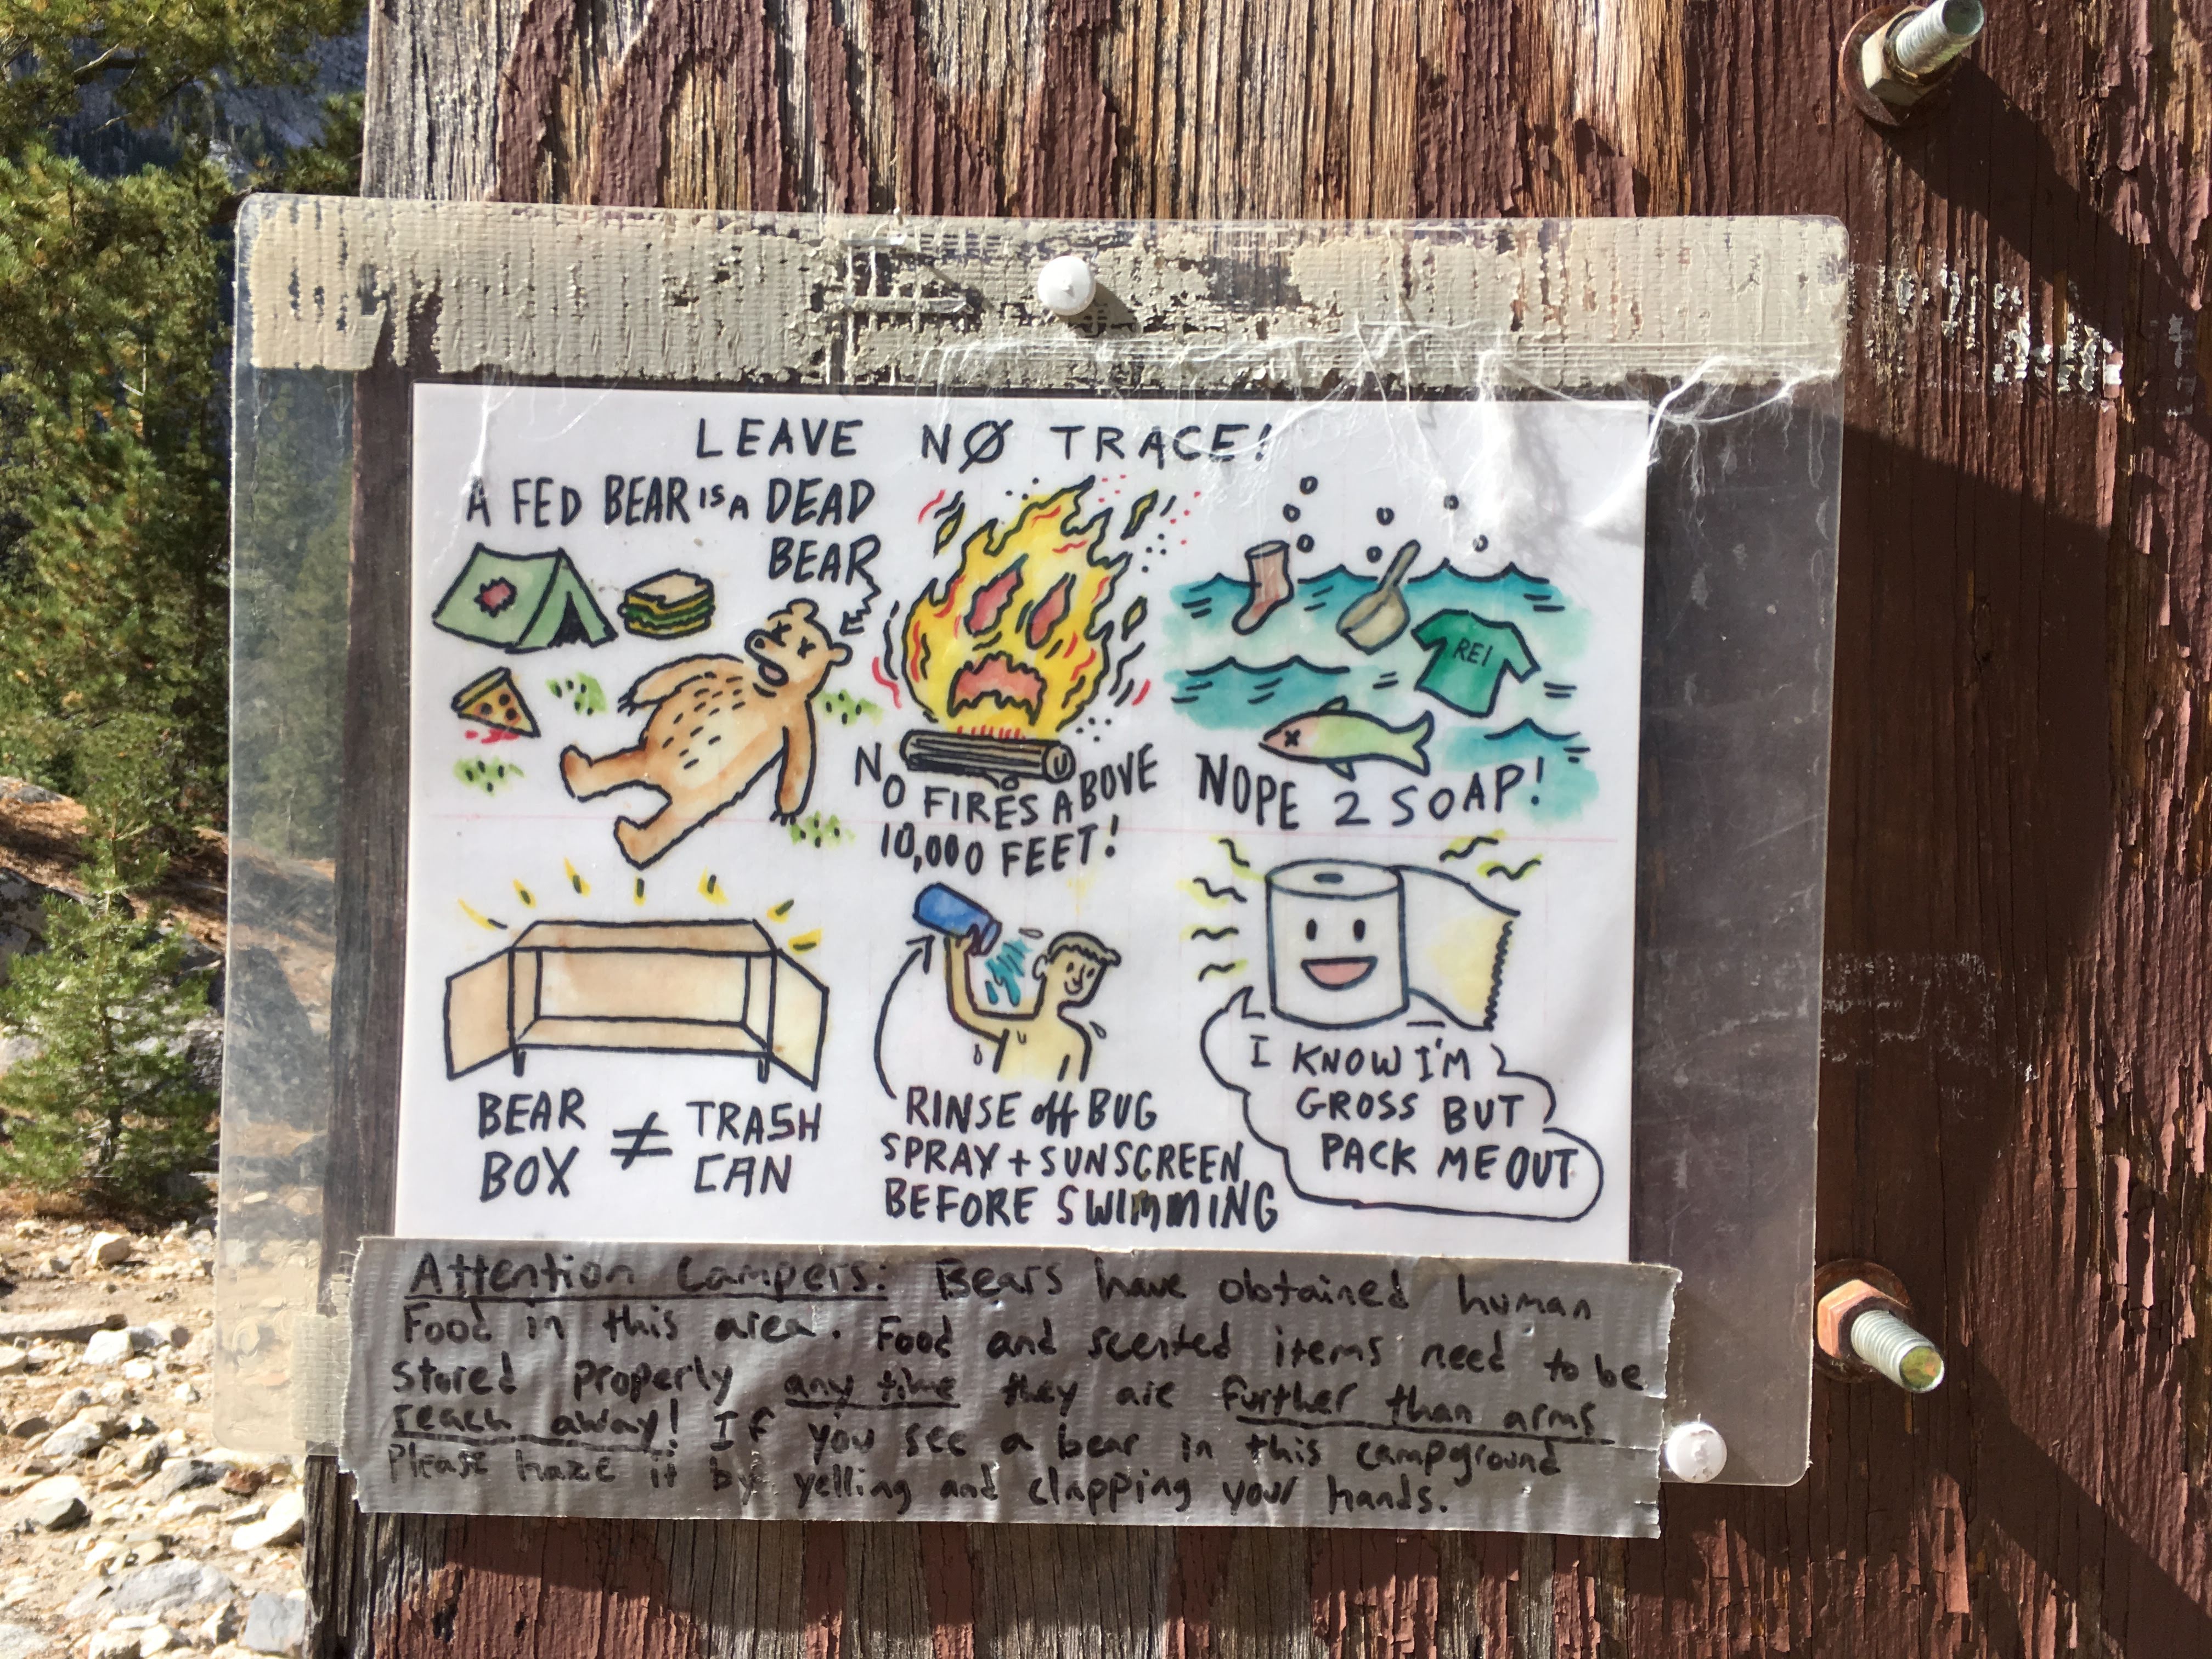 LEAVE NØ TRACE!
A FED BEAR IS A DEAD
BEAR
NO FIRES ABOVE
10,000 FEET!
REI
NOPE 2 SOAP!
BEAR
BOX ≠ TRASH
CAN
RINSE off BUG
SPRAY + SUNSCREEN
BEFORE SWIMMING
I KNOW I'M
GROSS BUT
PACK ME OUT
Attention Campers: Bears have obtained human
Food in this area. Food and scented items need to be
stored properly any time they are further than arms
reach away! If you see a bear in this campground
Please haze it by yelling and clapping your hands.